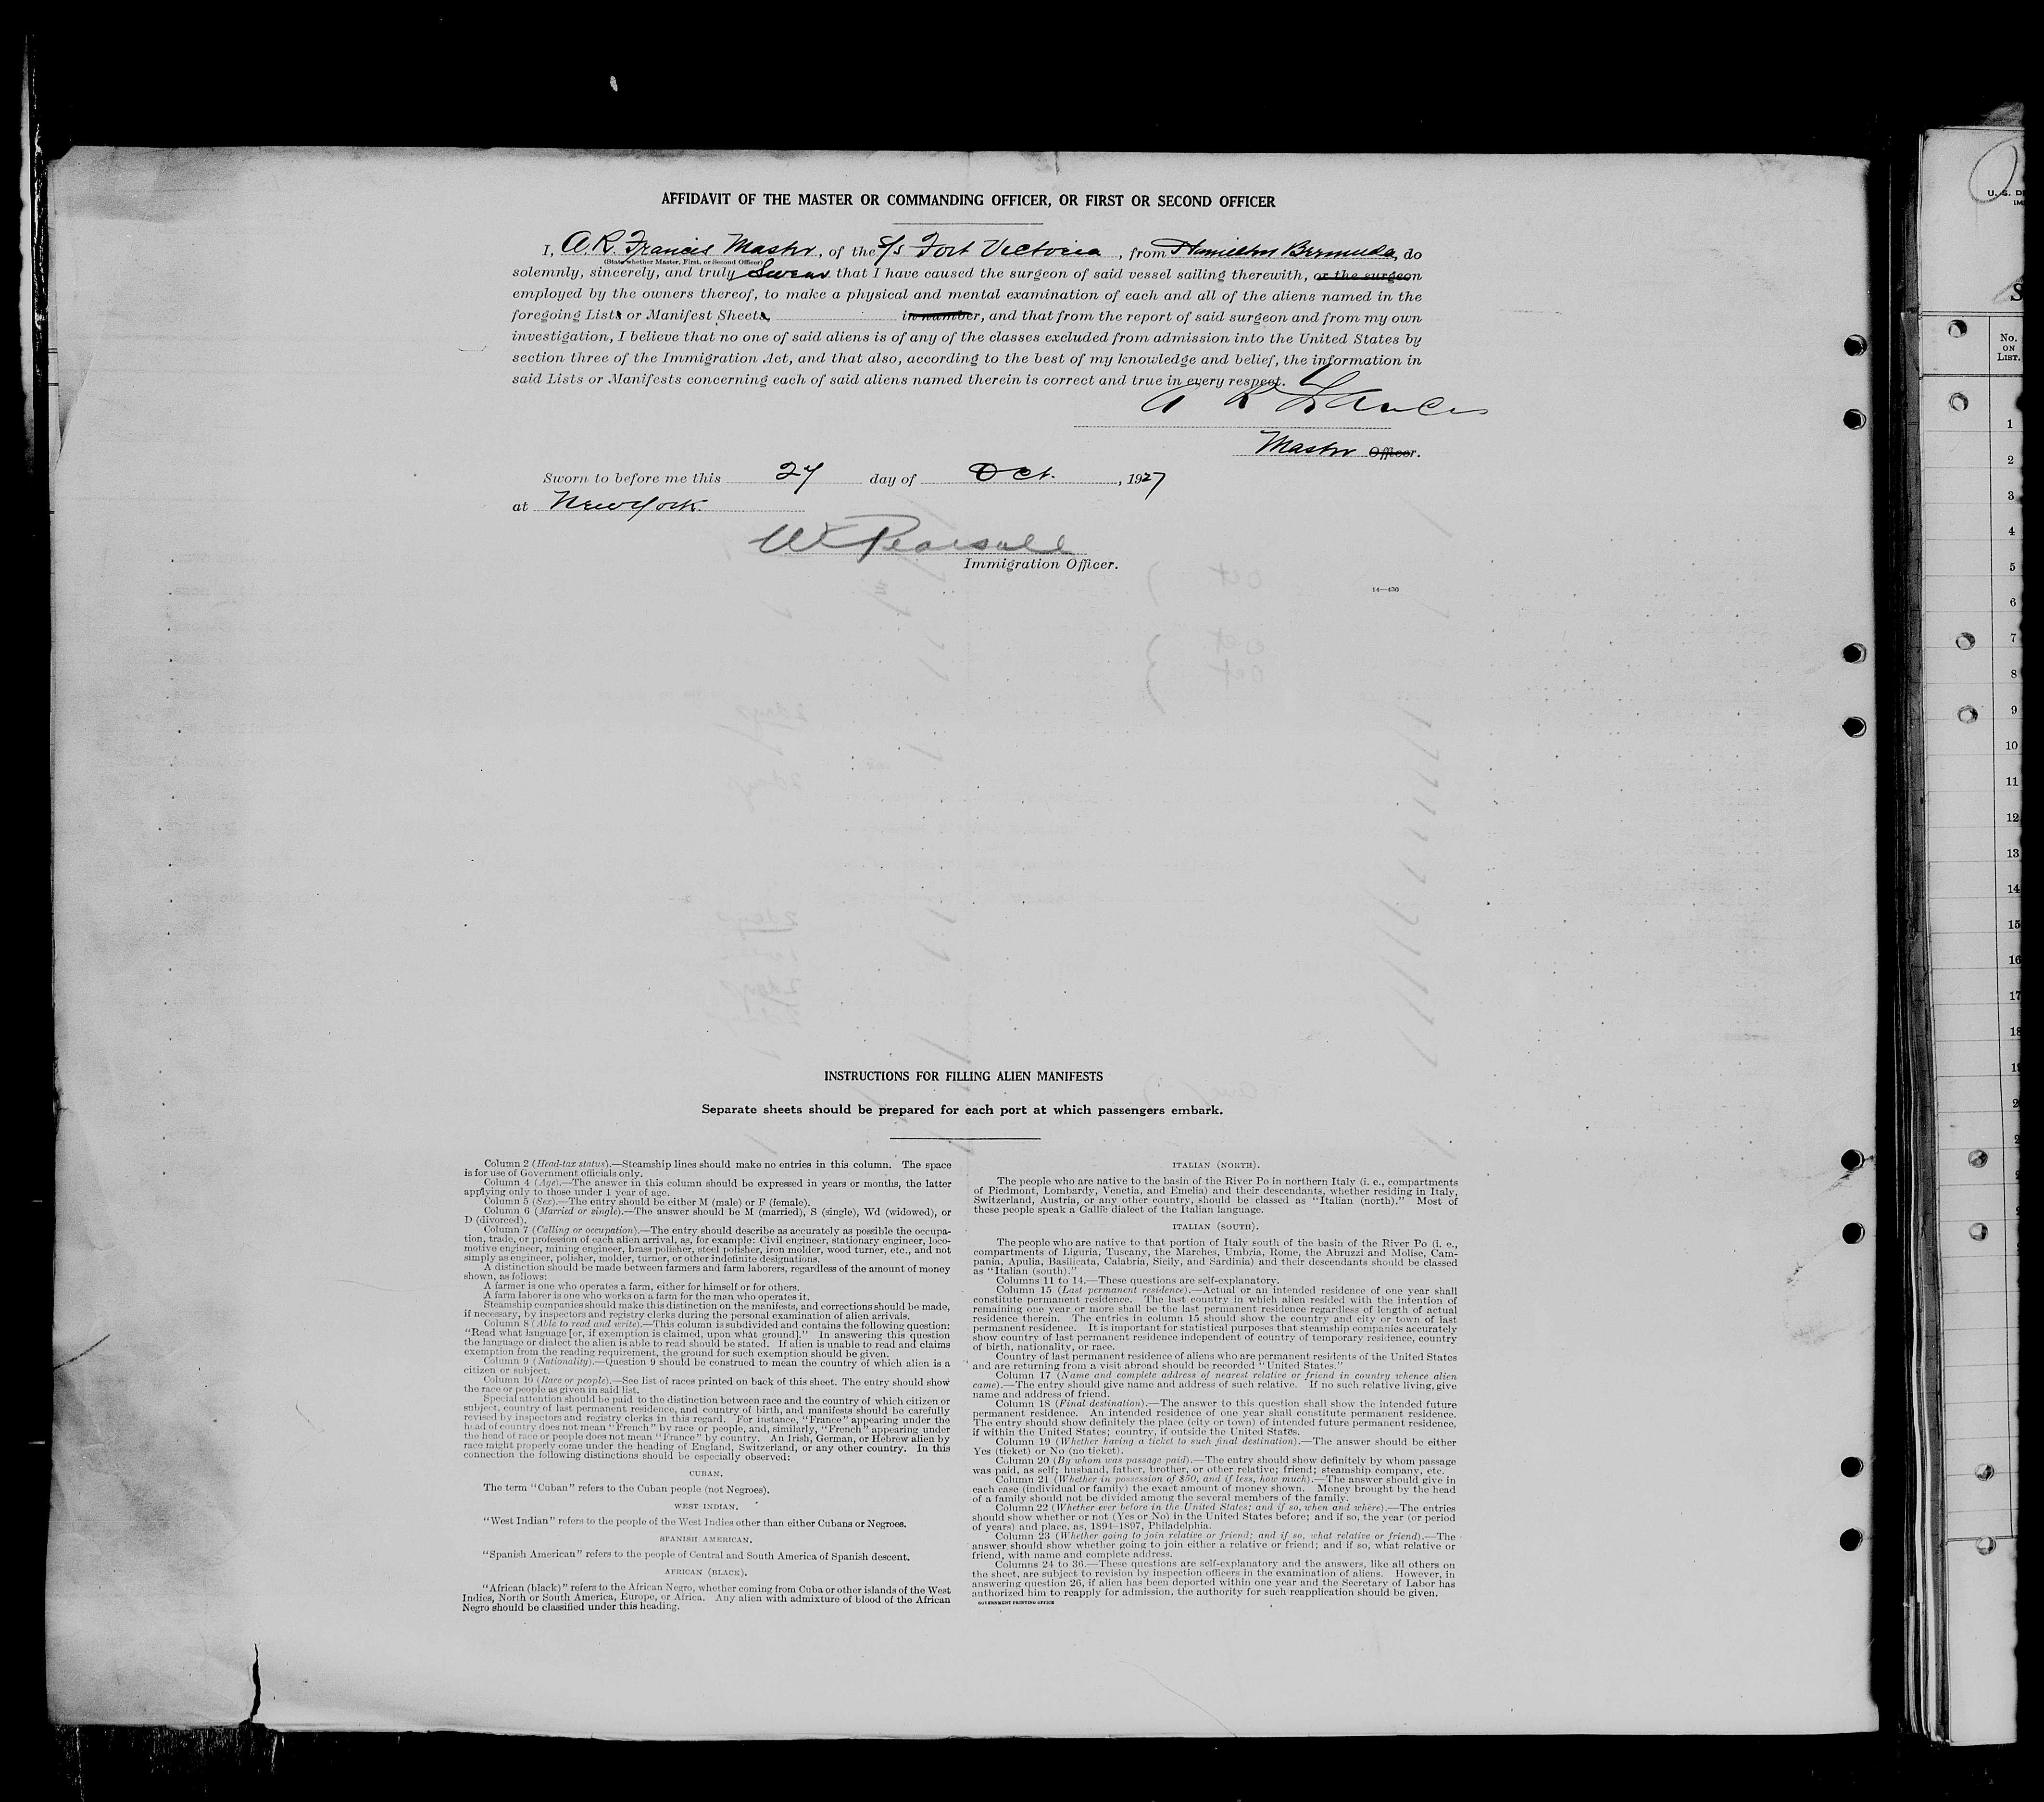 AFFIDAVIT OF THE MASTER OR COMMANDING OFFICER, OR FIRST OR SECOND OFFICER
I, A. R. Francis Master, of the S/S Fort Victoria, from Hamilton Bermuda, do
(State whether Master, First, or Second Officer)
solemnly, sincerely, and truly Swear that I have caused the surgeon of said vessel sailing therewith, or the surgeon
employed by the owners thereof, to make a physical and mental examination of each and all of the aliens named in the
foregoing Lists or Manifest Sheets, in number, and that from the report of said surgeon and from my own
investigation, I believe that no one of said aliens is of any of the classes excluded from admission into the United States by
section three of the Immigration Act, and that also, according to the best of my knowledge and belief, the information in
said Lists or Manifests concerning each of said aliens named therein is correct and true in every respect.
A R Francis
Master Officer.
Sworn to before me this 27 day of Oct., 1927
at New York.
W Pearsall
Immigration Officer.
14—436
INSTRUCTIONS FOR FILLING ALIEN MANIFESTS
Separate sheets should be prepared for each port at which passengers embark.
Column 2 (Head-tax status).—Steamship lines should make no entries in this column. The space
is for use of Government officials only.
Column 4 (Age).—The answer in this column should be expressed in years or months, the latter
applying only to those under 1 year of age.
Column 5 (Sex).—The entry should be either M (male) or F (female).
Column 6 (Married or single).—The answer should be M (married), S (single), Wd (widowed), or
D (divorced).
Column 7 (Calling or occupation).—The entry should describe as accurately as possible the occupa-
tion, trade, or profession of each alien arrival, as, for example: Civil engineer, stationary engineer, loco-
motive engineer, mining engineer, brass polisher, steel polisher, iron molder, wood turner, etc., and not
simply as engineer, polisher, molder, turner, or other indefinite designations.
A distinction should be made between farmers and farm laborers, regardless of the amount of money
shown, as follows:
A farmer is one who operates a farm, either for himself or for others.
A farm laborer is one who works on a farm for the man who operates it.
Steamship companies should make this distinction on the manifests, and corrections should be made,
if necessary, by inspectors and registry clerks during the personal examination of alien arrivals.
Column 8 (Able to read and write).—This column is subdivided and contains the following question:
"Read what language [or, if exemption is claimed, upon what ground]." In answering this question
the language or dialect the alien is able to read should be stated. If alien is unable to read and claims
exemption from the reading requirement, the ground for such exemption should be given.
Column 9 (Nationality).—Question 9 should be construed to mean the country of which alien is a
citizen or subject.
Column 10 (Race or people).—See list of races printed on back of this sheet. The entry should show
the race or people as given in said list.
Special attention should be paid to the distinction between race and the country of which citizen or
subject, country of last permanent residence, and country of birth, and manifests should be carefully
revised by inspectors and registry clerks in this regard. For instance, "France" appearing under the
head of country does not mean "French" by race or people, and, similarly, "French" appearing under
the head of race or people does not mean "France" by country. An Irish, German, or Hebrew alien by
race might properly come under the heading of England, Switzerland, or any other country. In this
connection the following distinctions should be especially observed:
CUBAN.
The term "Cuban" refers to the Cuban people (not Negroes).
WEST INDIAN.
"West Indian" refers to the people of the West Indies other than either Cubans or Negroes.
SPANISH AMERICAN.
"Spanish American" refers to the people of Central and South America of Spanish descent.
AFRICAN (BLACK).
"African (black)" refers to the African Negro, whether coming from Cuba or other islands of the West
Indies, North or South America, Europe, or Africa. Any alien with admixture of blood of the African
Negro should be classified under this heading.
ITALIAN (NORTH).
The people who are native to the basin of the River Po in northern Italy (i. e., compartments
of Piedmont, Lombardy, Venetia, and Emelia) and their descendants, whether residing in Italy,
Switzerland, Austria, or any other country, should be classed as "Italian (north)." Most of
these people speak a Gallic dialect of the Italian language.
ITALIAN (SOUTH).
The people who are native to that portion of Italy south of the basin of the River Po (i. e.,
compartments of Liguria, Tuscany, the Marches, Umbria, Rome, the Abruzzi and Molise, Cam-
pania, Apulia, Basilicata, Calabria, Sicily, and Sardinia) and their descendants should be classed
as "Italian (south)."
Columns 11 to 14.—These questions are self-explanatory.
Column 15 (Last permanent residence).—Actual or an intended residence of one year shall
constitute permanent residence. The last country in which alien resided with the intention of
remaining one year or more shall be the last permanent residence regardless of length of actual
residence therein. The entries in column 15 should show the country and city or town of last
permanent residence. It is important for statistical purposes that steamship companies accurately
show country of last permanent residence independent of country of temporary residence, country
of birth, nationality, or race.
Country of last permanent residence of aliens who are permanent residents of the United States
and are returning from a visit abroad should be recorded "United States."
Column 17 (Name and complete address of nearest relative or friend in country whence alien
came).—The entry should give name and address of such relative. If no such relative living, give
name and address of friend.
Column 18 (Final destination).—The answer to this question shall show the intended future
permanent residence. An intended residence of one year shall constitute permanent residence.
The entry should show definitely the place (city or town) of intended future permanent residence,
if within the United States; country, if outside the United States.
Column 19 (Whether having a ticket to such final destination).—The answer should be either
Yes (ticket) or No (no ticket).
Column 20 (By whom was passage paid).—The entry should show definitely by whom passage
was paid, as self; husband, father, brother, or other relative; friend; steamship company, etc.
Column 21 (Whether in possession of $50, and if less, how much).—The answer should give in
each case (individual or family) the exact amount of money shown. Money brought by the head
of a family should not be divided among the several members of the family.
Column 22 (Whether ever before in the United States; and if so, when and where).—The entries
should show whether or not (Yes or No) in the United States before; and if so, the year (or period
of years) and place, as, 1894–1897, Philadelphia.
Column 23 (Whether going to join relative or friend; and if so, what relative or friend).—The
answer should show whether going to join either a relative or friend; and if so, what relative or
friend, with name and complete address.
Columns 24 to 36.—These questions are self-explanatory and the answers, like all others on
the sheet, are subject to revision by inspection officers in the examination of aliens. However, in
answering question 26, if alien has been deported within one year and the Secretary of Labor has
authorized him to reapply for admission, the authority for such reapplication should be given.
GOVERNMENT PRINTING OFFICE
No.
ON
LIST.
1
2
3
4
5
6
7
8
9
10
11
12
13
14
15
16
17
18